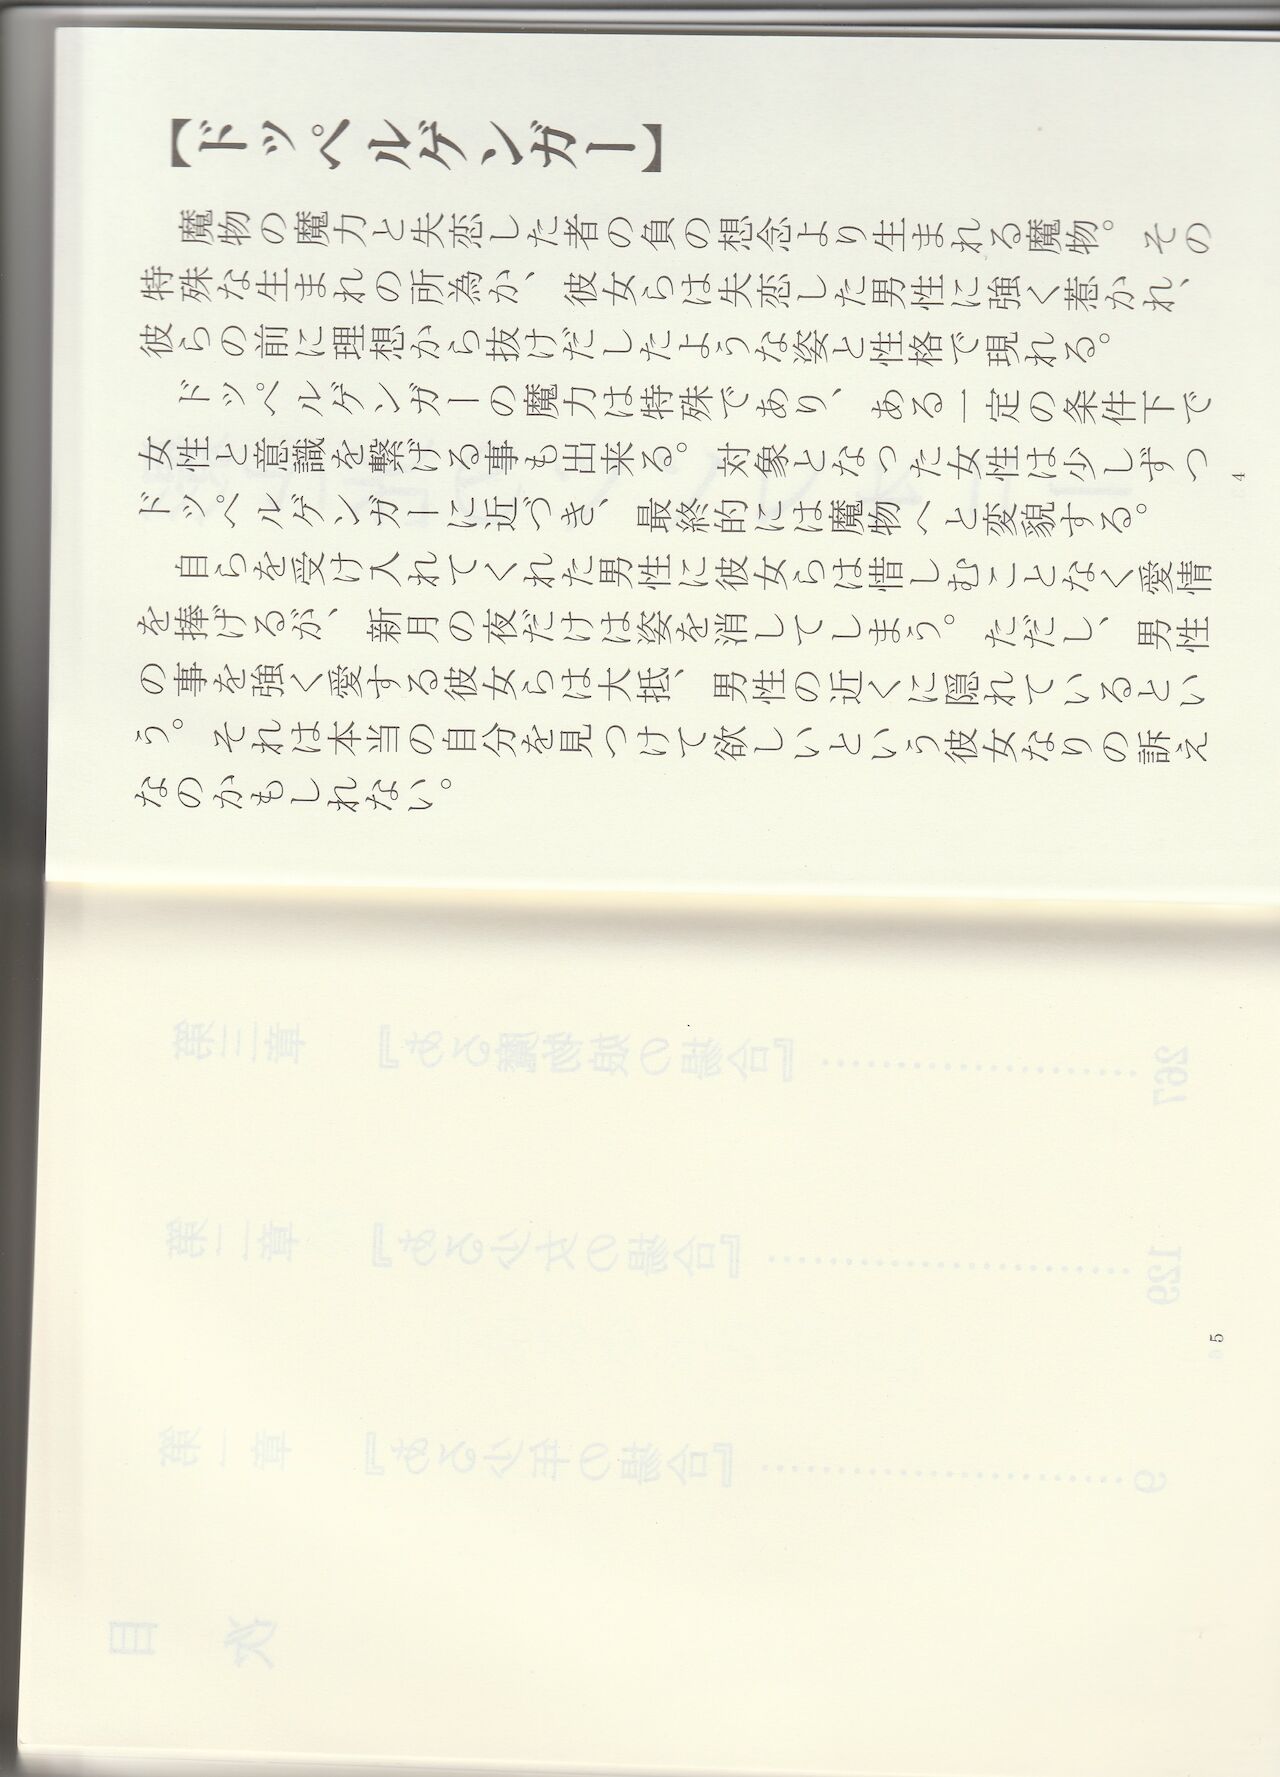 【ドッペルゲンガー】
魔物の魔力と失恋した者の負の想念より生まれる魔物。その
特殊な生まれの所為か、彼女らは失恋した男性に強く惹かれ、
彼らの前に理想から抜けだしたような姿と性格で現れる。
ドッペルゲンガーの魔力は特殊であり、ある一定の条件下で
女性と意識を繋げる事も出来る。対象となった女性は少しずつ
ドッペルゲンガーに近づき、最終的には魔物へと変貌する。
自らを受け入れてくれた男性に彼女らは惜しむことなく愛情
を捧げるが、新月の夜だけは姿を消してしまう。ただし、男性
の事を強く愛する彼女らは大抵、男性の近くに隠れているとい
う。それは本当の自分を見つけて欲しいという彼女なりの訴え
なのかもしれない。
4
5
目次
第一章 『ある少年の場合』 9
第二章 『ある少女の場合』 129
第三章 267